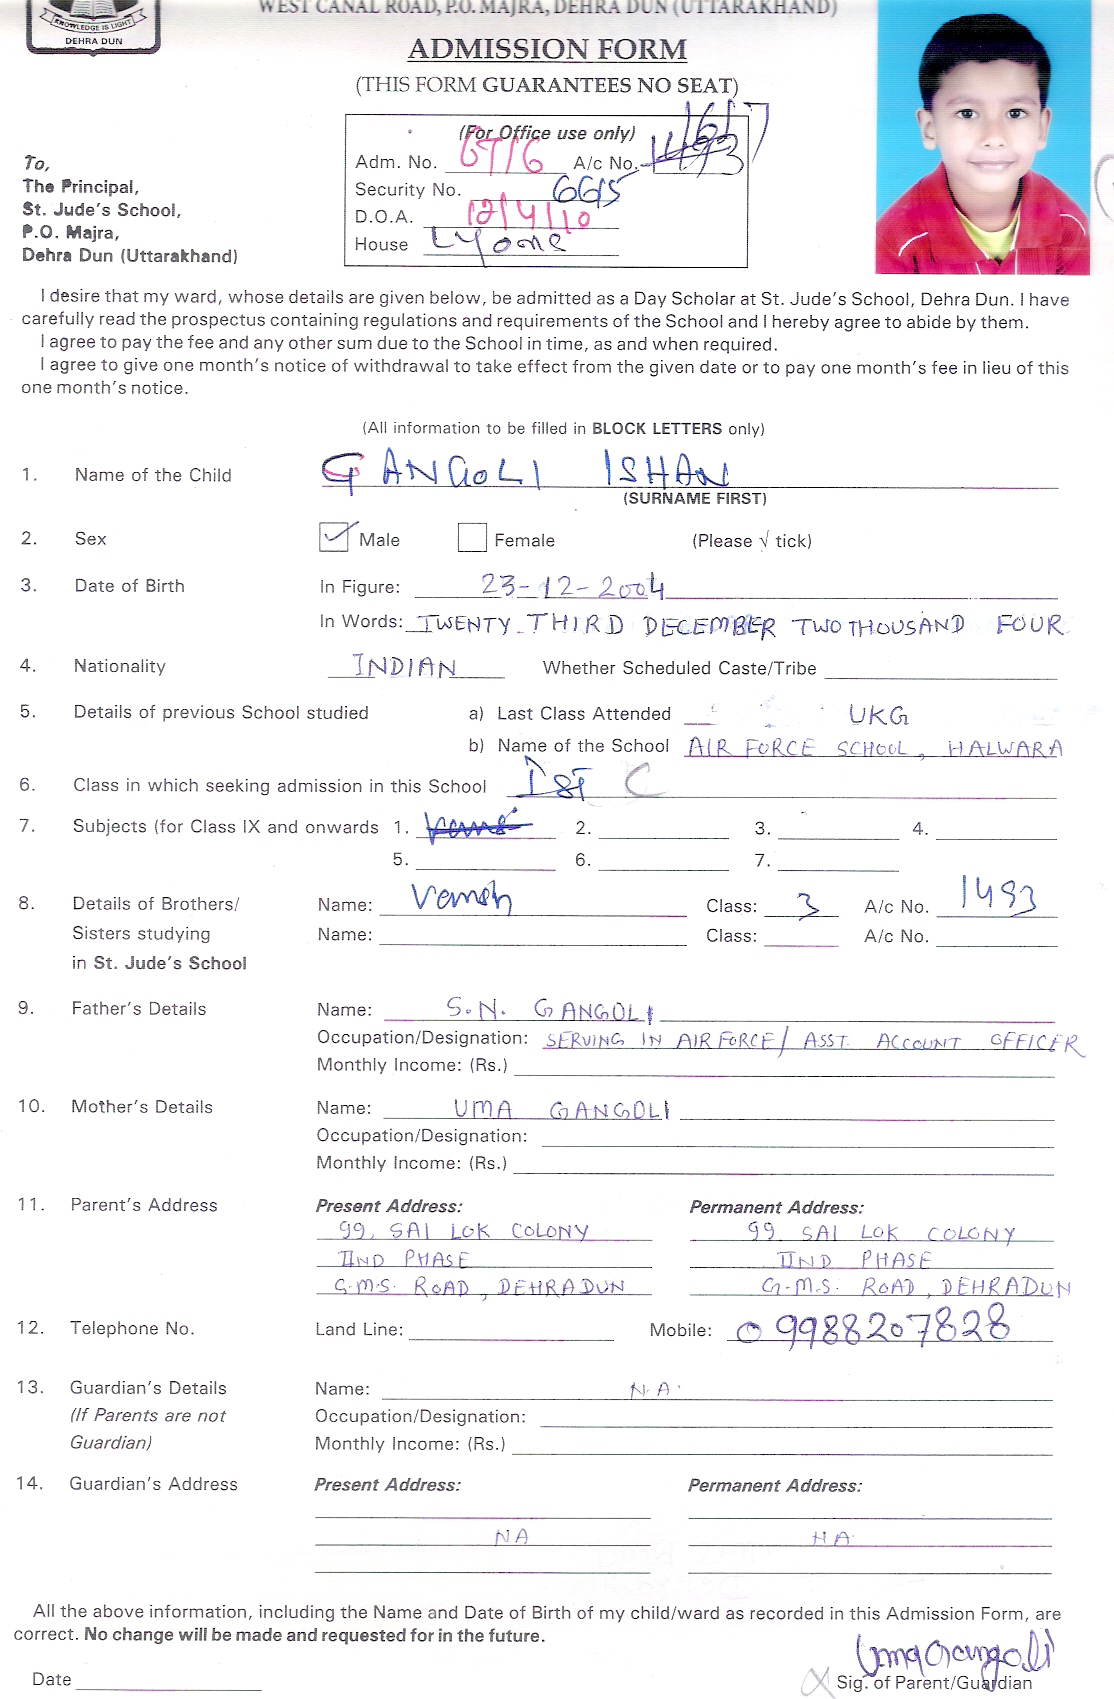 KNOWLEDGE IS LIGHT
DEHRA DUN
WEST CANAL ROAD, P.O. MAJRA, DEHRA DUN (UTTARAKHAND)
ADMISSION FORM
(THIS FORM GUARANTEES NO SEAT)
(For Office use only) 1617
Adm. No. 6716 A/c No. 1493
Security No. 6615
D.O.A. 12/4/10
House Lyone
To,
The Principal,
St. Jude's School,
P.O. Majra,
Dehra Dun (Uttarakhand)
I desire that my ward, whose details are given below, be admitted as a Day Scholar at St. Jude's School, Dehra Dun. I have
carefully read the prospectus containing regulations and requirements of the School and I hereby agree to abide by them.
I agree to pay the fee and any other sum due to the School in time, as and when required.
I agree to give one month's notice of withdrawal to take effect from the given date or to pay one month's fee in lieu of this
one month's notice.
(All information to be filled in BLOCK LETTERS only)
1. Name of the Child GANGOLI ISHAN
(SURNAME FIRST)
2. Sex Male Female (Please √ tick)
3. Date of Birth In Figure: 23-12-2004
In Words: TWENTY THIRD DECEMBER TWO THOUSAND FOUR
4. Nationality INDIAN Whether Scheduled Caste/Tribe
5. Details of previous School studied a) Last Class Attended UKG
b) Name of the School AIR FORCE SCHOOL, HALWARA
6. Class in which seeking admission in this School IST C
7. Subjects (for Class IX and onwards 1. 2. 3. 4.
5. 6. 7.
8. Details of Brothers/ Name: Vansh Class: 3 A/c No. 1493
Sisters studying Name: Class: A/c No.
in St. Jude's School
9. Father's Details Name: S.N. GANGOLI
Occupation/Designation: SERVING IN AIR FORCE/ ASST. ACCOUNT OFFICER
Monthly Income: (Rs.)
10. Mother's Details Name: UMA GANGOLI
Occupation/Designation:
Monthly Income: (Rs.)
11. Parent's Address Present Address: Permanent Address:
99, SAI LOK COLONY 99 SAI LOK COLONY
IIND PHASE IIND PHASE
G.M.S. ROAD, DEHRADUN G.M.S. ROAD, DEHRADUN
12. Telephone No. Land Line: Mobile: 09988207828
13. Guardian's Details Name: N.A.
(If Parents are not Occupation/Designation:
Guardian) Monthly Income: (Rs.)
14. Guardian's Address Present Address: Permanent Address:
NA NA
All the above information, including the Name and Date of Birth of my child/ward as recorded in this Admission Form, are
correct. No change will be made and requested for in the future.
Uma Gangoli
Date Sig. of Parent/Guardian